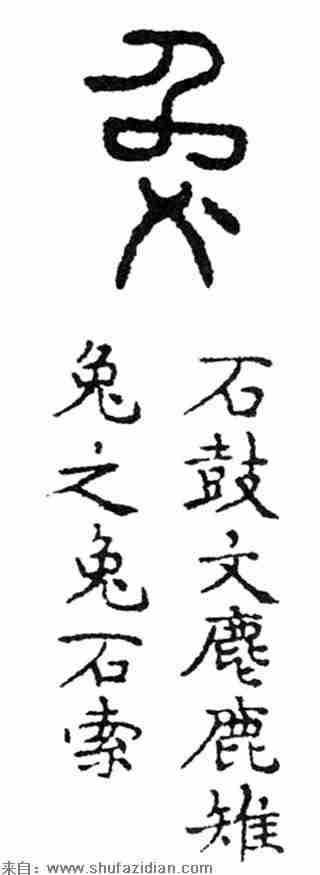 兔
石鼓文麀鹿雉
兔之兔石索
来自：www.shufazidian.com